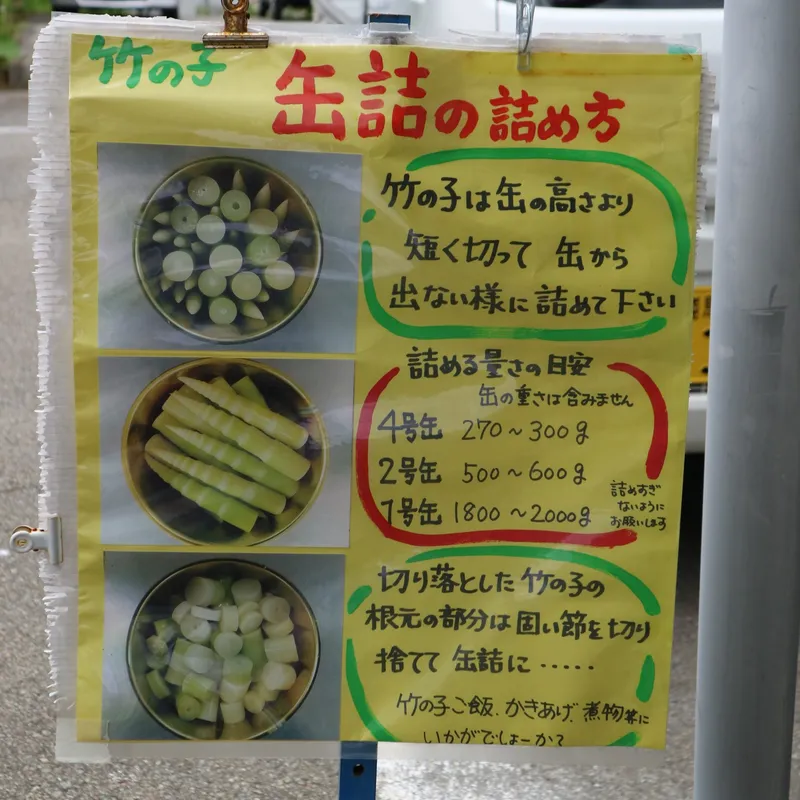 竹の子
缶詰の詰め方
竹の子は缶の高さより
短く切って 缶から
出ない様に詰めて下さい
詰める量さの目安
缶の重さは含みません
4号缶 270~300g
2号缶 500~600g
1号缶 1800~2000g
詰めすぎ
ないように
お願いします
切り落とした竹の子の
根元の部分は固い節を切り
捨てて 缶詰に・・・・・
竹の子ご飯、かきあげ、煮物等に
いかがでしょーか?